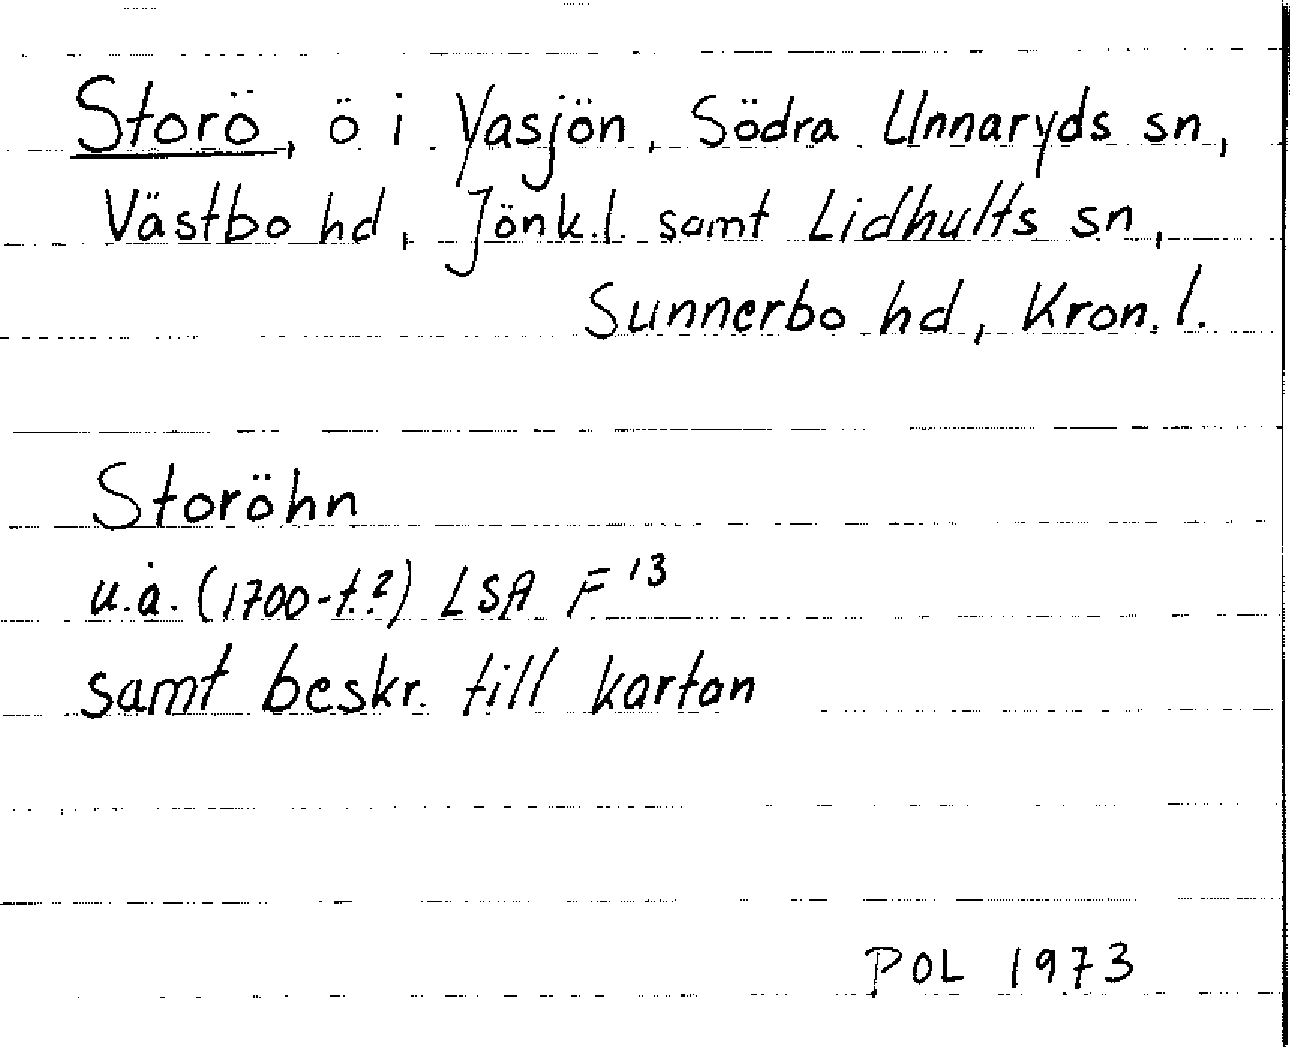 Storö, ö i Yasjön, Södra Unnaryds sn,
Västbo hd, Jönk.l. samt Lidhults sn,
Sunnerbo hd, Kron.l.
Storöhn
u.å. (1700-t.?) LSA F 13
samt beskr. till kartan
POL 1973